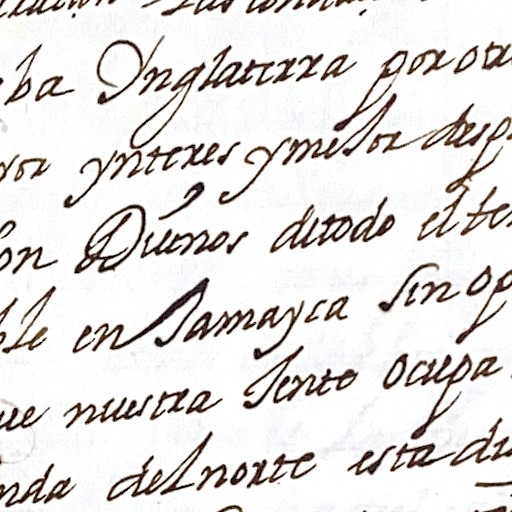 ba Ynglaterra por otr
yor ynteres y mejor desp
on Dueños de todo el te
ble en Jamayca sin op
ue nuestra Jente ocupa
nda del norte esta du